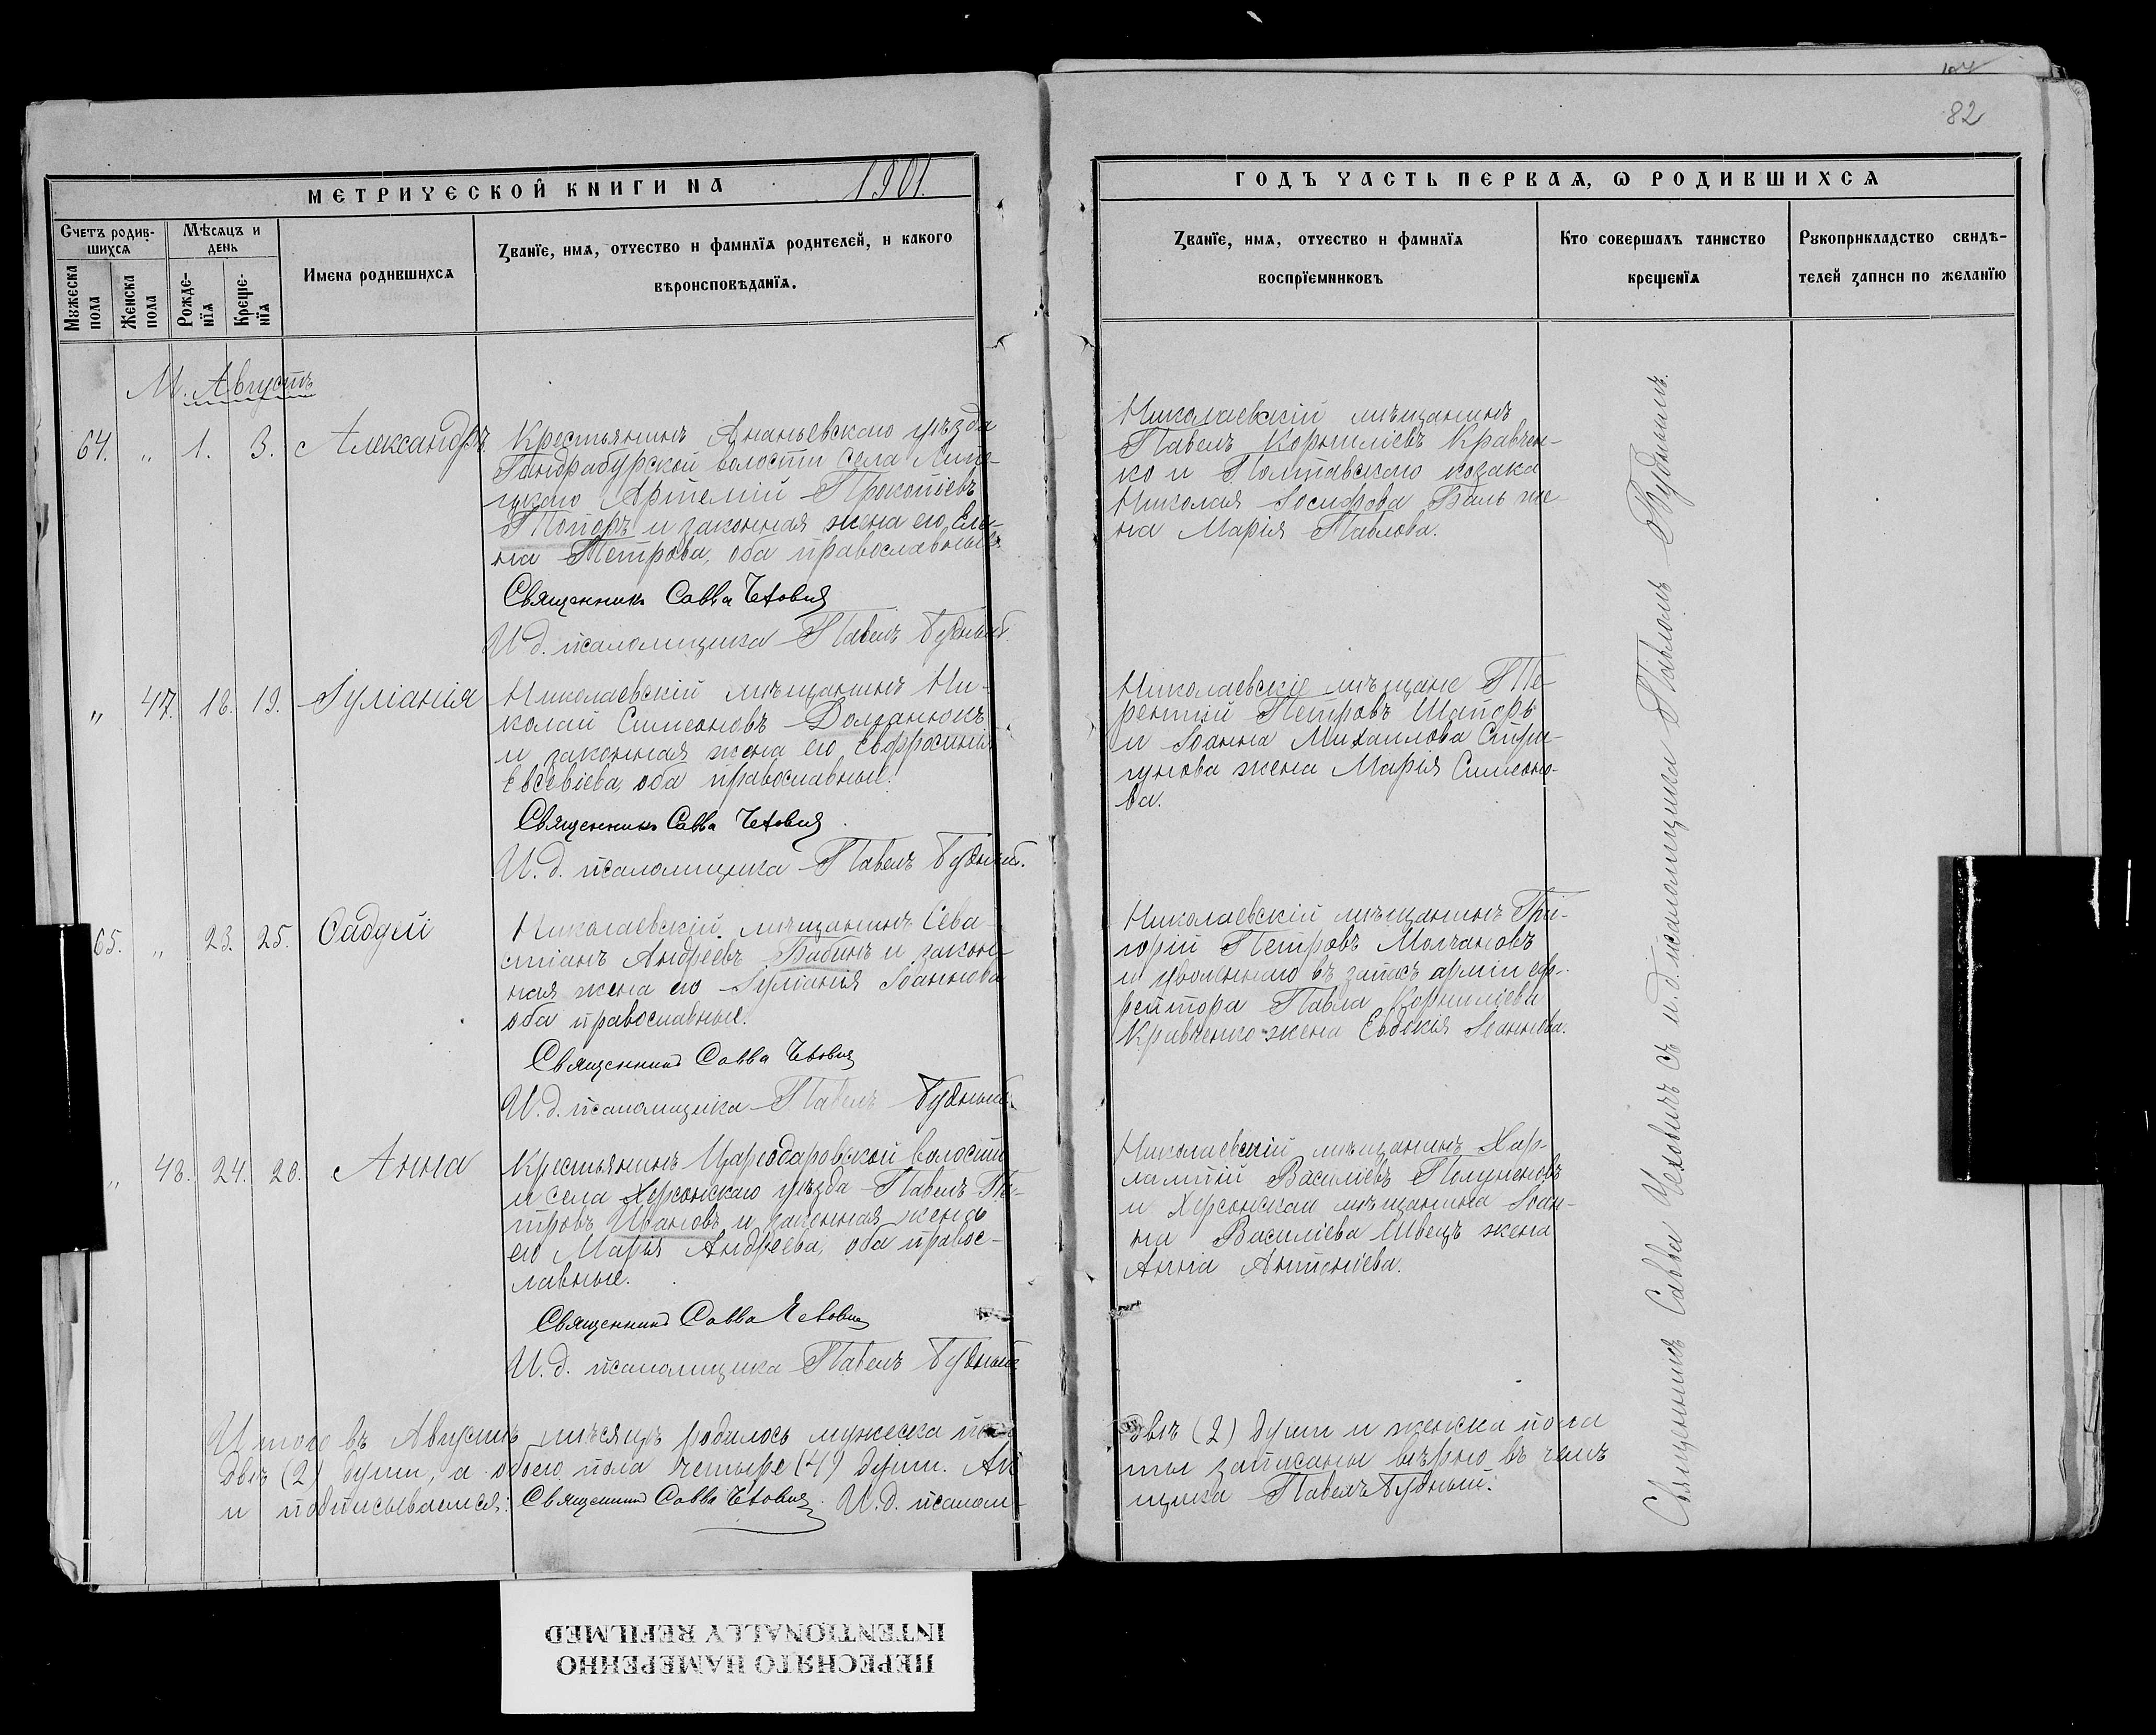 82
МЕТРИЧЕСКОЙ КНИГИ НА 1901
ГОДЪ ЧАСТЬ ПЕРВАЯ, Ѡ РОДИВШИХСЯ
Счетъ родив-
шихся
Мѣсяцъ и
день
Мꙋжеска
пола
Женска
пола
Рожде-
нїя
Креще-
нїя
Имена родившихся
Званїе, имя, отчество и фамилїя родителей, и какого
вѣроисповѣданїя.
Званїе, имя, отчество и фамилїя
воспрїемниковъ
Кто совершалъ таинство
крещенїя
Рꙋкоприкладство свидѣ-
телей записи по желанїю
М. Августъ
64. „ 1. 3. Александръ
Крестьянинъ Ананьевскаго уѣзда
Гандрабурской волости села Липе-
цкаго Артемій Прокопіевъ
Топоръ и законная жена его, Еле-
на Петрова, оба православные.
Священникъ Савва Чеховичъ
И. д. псаломщика Павелъ Будный.
Николаевскій мѣщанинъ
Павелъ Корниліевъ Кравчен-
ко и Полтавскаго козака
Николая Іосифова Валь же-
на Марія Павлова.
„ 47. 18. 19. Іуліанія
Николаевскій мѣщанинъ Ни-
колай Симеоновъ Долганюкъ
и законная жена его Евфросинія
Евсевіева, оба православные.
Священникъ Савва Чеховичъ
И. д. псаломщика Павелъ Будный.
Николаевскіе мѣщане Те-
рентій Петровъ Шапоръ
и Іоанна Михаилова Стри-
гунова жена Марія Симеоно-
ва.
65. „ 23. 25. Ѳаддей
Николаевскій мѣщанинъ Сева-
стіанъ Андреевъ Бабинъ и закон-
ная жена его Іуліанія Іоаннова
оба православные.
Священникъ Савва Чеховичъ
И. д. псаломщика Павелъ Будный.
Николаевскій мѣщанинъ Гри-
горій Петровъ Молчановъ
и уволеннаго въ запасъ арміи еф-
рейтора Павла Корниліева
Кравченко жена Евдокія Іоаннова.
„ 48. 24. 26. Анна
Крестьянинъ Царедаровской волости
и села Херсонскаго уѣзда Павелъ Пе-
тровъ Ивановъ и законная жена
его Марія Андреева, оба правос-
лавные.
Священникъ Савва Чеховичъ
И. д. псаломщика Павелъ Будный
Николаевскій мѣщанинъ Хар-
лампій Василіевъ Полуненовъ
и Херсонская мѣщанина Іоан-
на Василіева Швецъ жена
Анна Антоніева.
Священникъ Савва Чеховичъ съ и. д. псаломщика Павломъ Буднымъ.
Итого въ Августѣ мѣсяцѣ родилось мужеска пола
двѣ (2) души, а обоего пола четыре (4) души. Ак
и подписываемся: Священникъ Савва Чеховичъ. И. д. псалом-
двѣ (2) души и женска пола
ты записаны вѣрно въ чемъ
щика Павелъ Будный.
ПЕРЕСНЯТО НАМЕРЕННО
INTENTIONALLY REFILMED